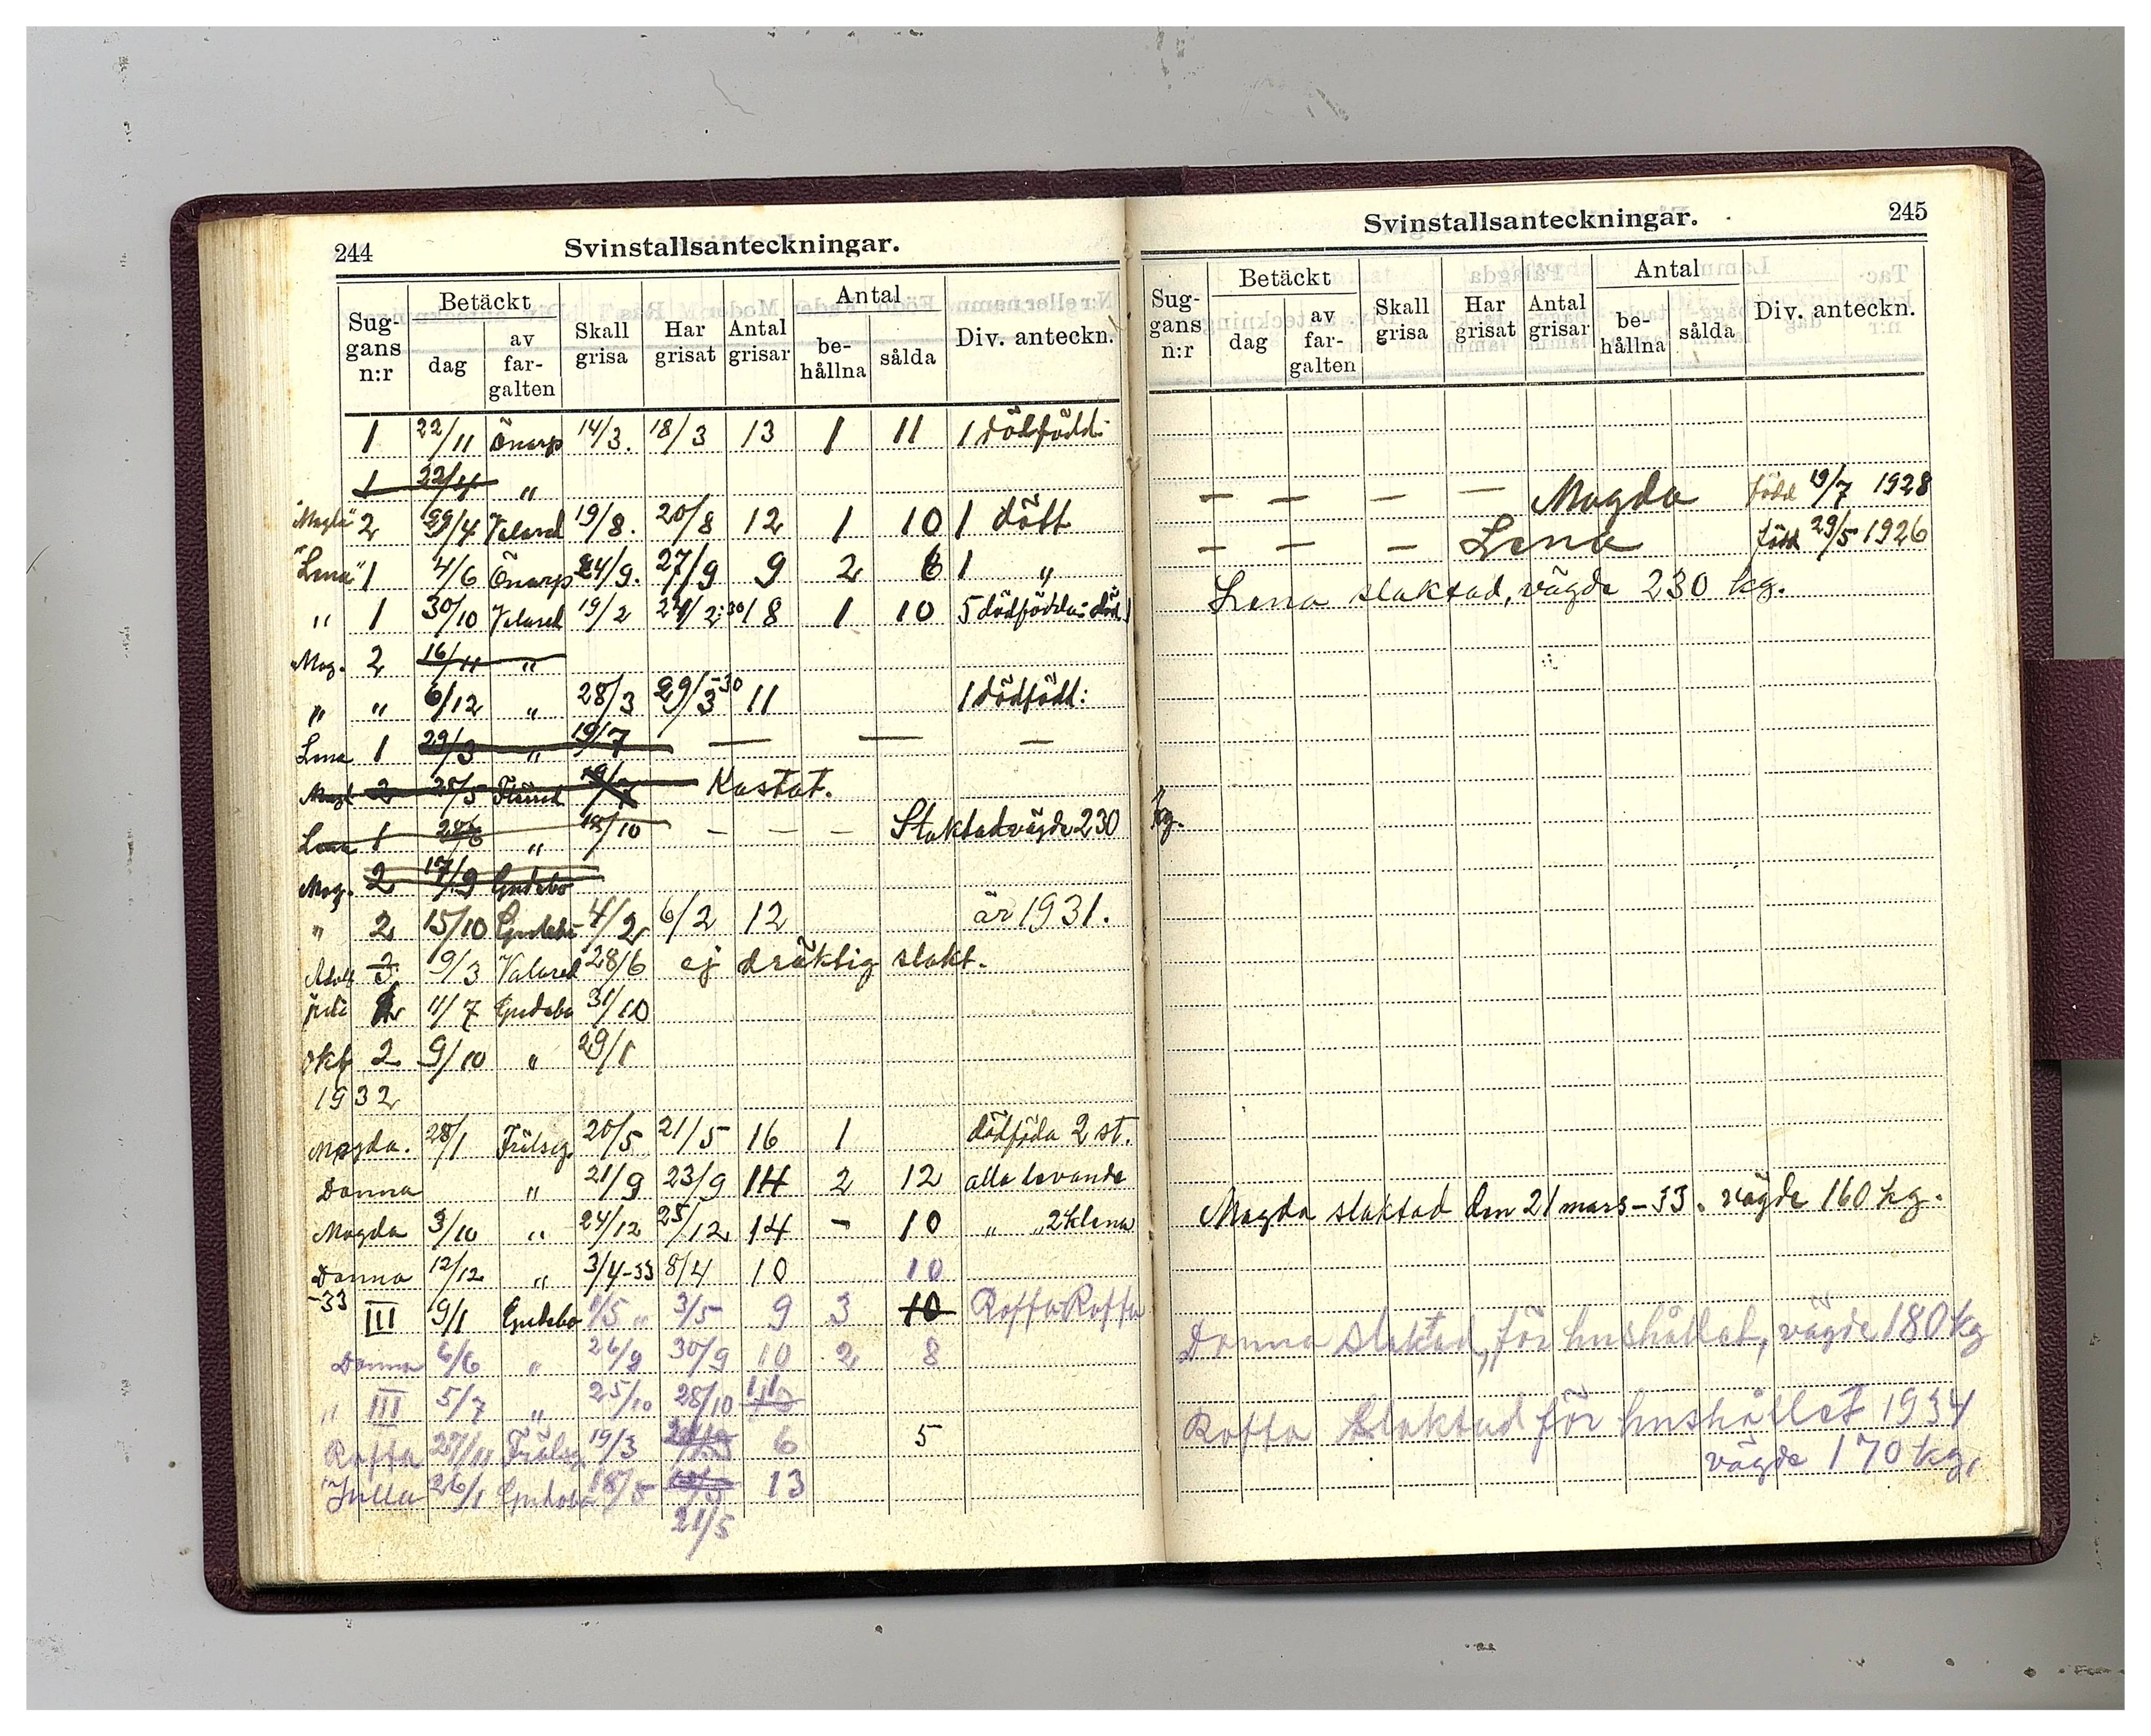 244
Svinstallsanteckningar.
Sug-gans n:r | Betäckt dag | Betäckt av far-galten | Skall grisa | Har grisat | Antal grisar | Antal be-hållna | Antal sålda | Div. anteckn.
1 22/11 Önarp 14/3. 18/3 13 1 11 1 dödfödd:
1 22/4 "
"Magda" 2 /4 Valared 19/8. 20/8 12 1 10 1 dött
"Lena" 1 4/6 Önarp 24/9. 27/9 9 2 6 1 "
" 1 30/10 Valared 19/2 /2:30 18 1 10 5 dödfödda: död 1
Mag. 2 16/11 "
" " 6/12 " 28/3 29/3-30 11 1 dödfödd:
Lena 1 29/3 " 19/7 — — —
Magd 2 28/5 Kastat.
Lena 1 " 18/10 – – – Slaktad vägde 230 kg.
Mag. 2 17/9 Gudebo
" 2 15/10 Gudebo 4/2 6/2 12 år 1931.
9/3 Valared 28/6 ej dräktig slakt.
juli 2 11/7 Gudebo 31/10
okt 2 9/10 " 29/1
1932
Magda. 28/1 Frälseg. 20/5 21/5 16 1 dödföda 2 st.
Donna " 21/9 23/9 14 2 12 alla levande
Magda 3/10 " 24/12 25/12 14 – 10 " " 2 klena
Donna 12/12 " 3/4-33 8/4 10 10
-33 III 9/1 Gudebo 1/5 " 3/5 9 3 10 Roffa Roffa
Donna 6/6 " 26/9 30/9 10 2 8
" III 5/7 " 25/10 28/10 11
Roffa 27/11 Frälseg 19/3 6 5
Julla 26/1 Gudebo 18/5 13
21/5
245
Svinstallsanteckningar.
Sug-gans n:r | Betäckt dag | Betäckt av far-galten | Skall grisa | Har grisat | Antal grisar | Antal be-hållna | Antal sålda | Div. anteckn.
– – – – Magda född 19/7 1928
– – – Lena född 29/5 1926
Lena slaktad, vägde 230 kg.
Magda slaktad den 21 mars -33. vägde 160 kg.
Donna slaktad, för hushållet, vägde 180 kg
Roffa slaktad för hushållet 1934
vägde 170 kg,